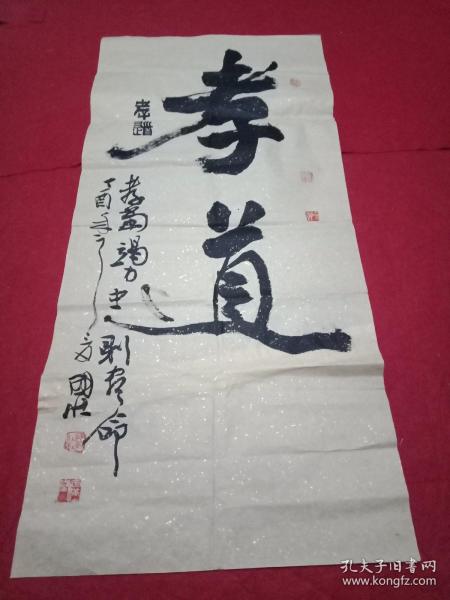 孝道
孝道
孝當竭力忠則盡命
丁酉年
國
孔夫子旧书网
www.kongfz.com